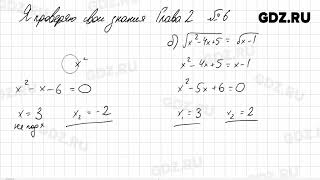 Я проверяю свои знания Глава 2 №6
GDZ.RU
x²
x² - x - 6 = 0
x = 3 x₂ = -2
не подх
б) √x²-4x+5 = √x-1
x² - 4x + 5 = x - 1
x² - 5x + 6 = 0
x₁ = 3 x₂ = 2
GDZ.RU